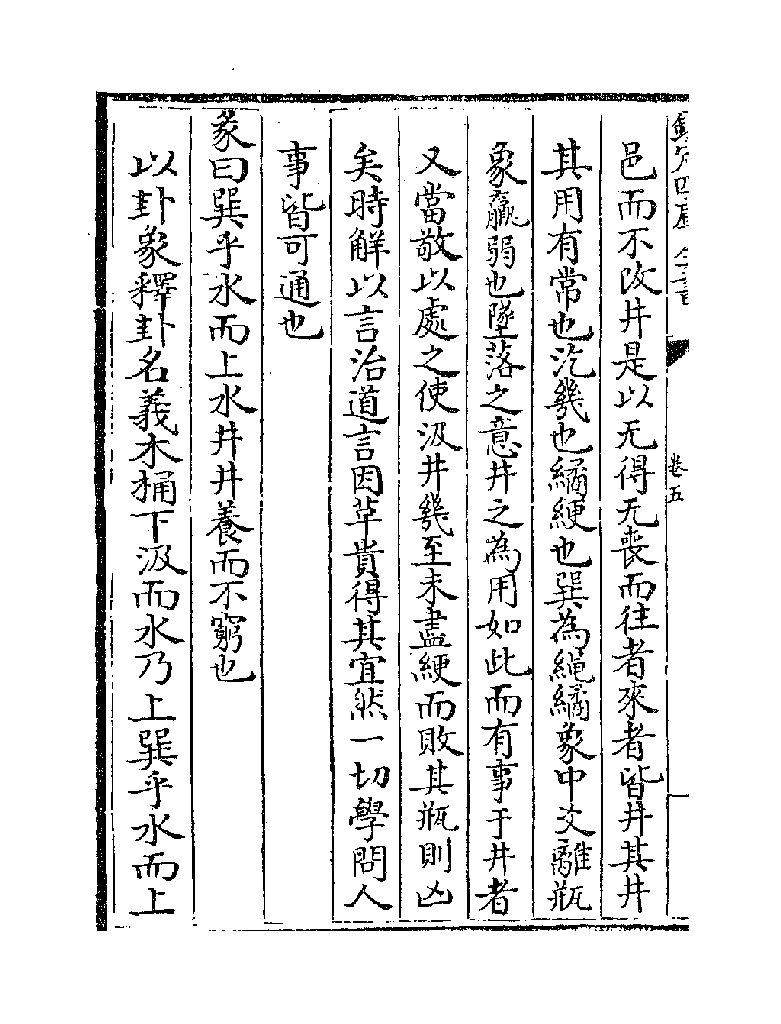 欽定四庫全書
卷五
邑而不改井是以无得无喪而往者來者皆井其井
其用有常也汔幾也繘綆也巽為繩繘象中爻離瓶
象羸弱也墜落之意井之為用如此而有事于井者
又當敬以處之使汲井幾至未盡綆而敗其瓶則凶
矣時解以言治道言因革貴得其宜然一切學問人
事皆可通也
彖曰巽乎水而上水井井養而不窮也
以卦象釋卦名義木桶下汲而水乃上巽乎水而上